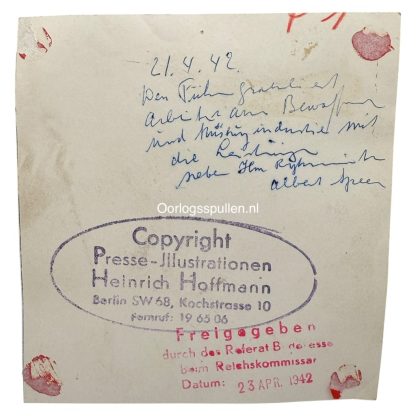 21.4.42.
Den Führer gratuliert
Arbeiter aus
und Rüstungindustrie mit
die
neben Ihm
Albert Speer
Oorlogsspullen.nl
Copyright
Presse-Jllustrationen
Heinrich Hoffmann
Berlin SW 68, Kochstrasse 10
Fernruf: 19 65 06
Freigegeben
durch das Referat Bildpresse
beim Reichskommissar
Datum: 23 APR. 1942